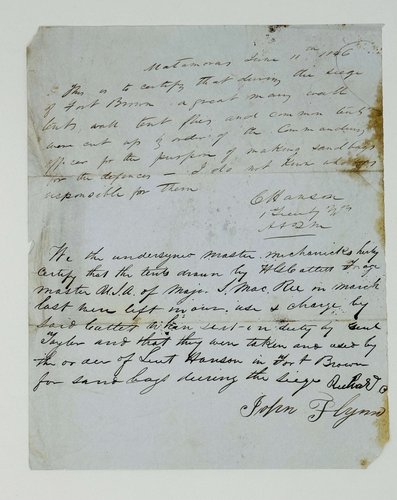 Matamoras June 11th 1846
This is to certify that during the siege
of Fort Brown a great many wall
tents, wall tent flies and common tents
were cut up by order of the Commanding
officer for the purpose of making sand bags
for the defences — I do not know who was
responsible for them
C Hanson
1 Lieut 7th
A A Q M
We the undersigned master mechanicks hereby
certify that the tents drawn by H Cattett
master U.S.A. of Majr. S. Mac Ree in march
last were left in our use & charge by
said Cattett when sent in duty by Genl
Taylor and that they were taken and used by
the order of Lieut Hanson in Fort Brown
for sand bags during the siege
John Flynn